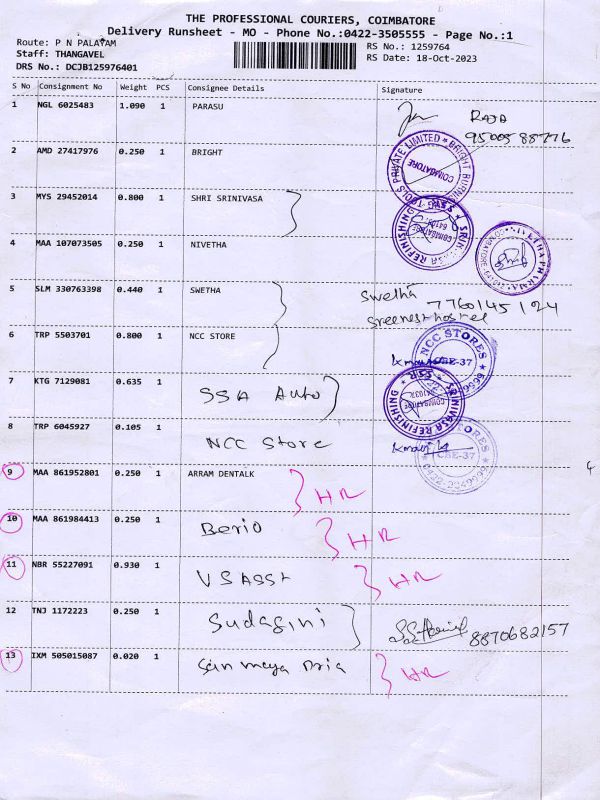 THE PROFESSIONAL COURIERS, COIMBATORE
Delivery Runsheet - MO - Phone No.:0422-3505555 - Page No.:1
Route: P N PALAYAM
Staff: THANGAVEL
DRS No.: DCJB125976401
RS No.: 1259764
RS Date: 18-Oct-2023
S No Consignment No Weight PCS Consignee Details Signature
1 NGL 6025483 1.090 1 PARASU RAJA
9500588776
2 AMD 27417976 0.250 1 BRIGHT
3 MYS 29452014 0.800 1 SHRI SRINIVASA
4 MAA 107073505 0.250 1 NIVETHA
5 SLM 330763398 0.440 1 SWETHA Swetha 7760145124
Sreenest hostel
6 TRP 5503701 0.800 1 NCC STORE NCC STORES CBE-37
7 KTG 7129081 0.635 1 SSA Auto SRINIVASA REFINISHING
8 TRP 6045927 0.105 1 NCC Store CBE-37 0422-2049999
9 MAA 861952801 0.250 1 ARRAM DENTALK HR
10 MAA 861984413 0.250 1 Berio HR
11 NBR 55227091 0.930 1 VSASST HR
12 TNJ 1172223 0.250 1 Sudagini 8870682157
13 IXM 505015087 0.020 1 HR